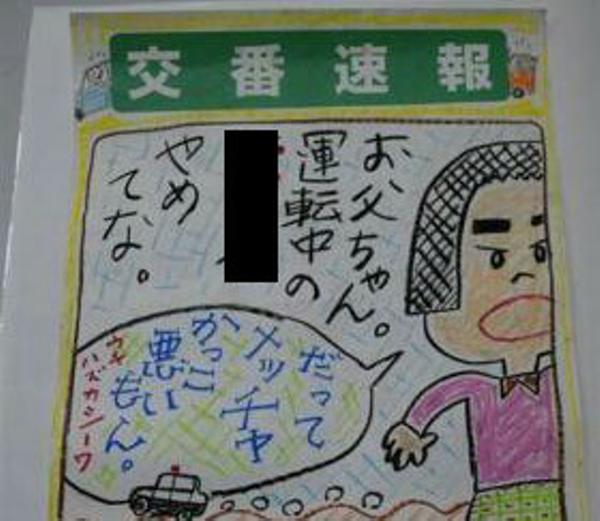 交番速報
お父ちゃん。
運転中の
やめ
てな。
だって
メッチャ
かっこ
悪いもん。
ウチ
ハズカシーワ